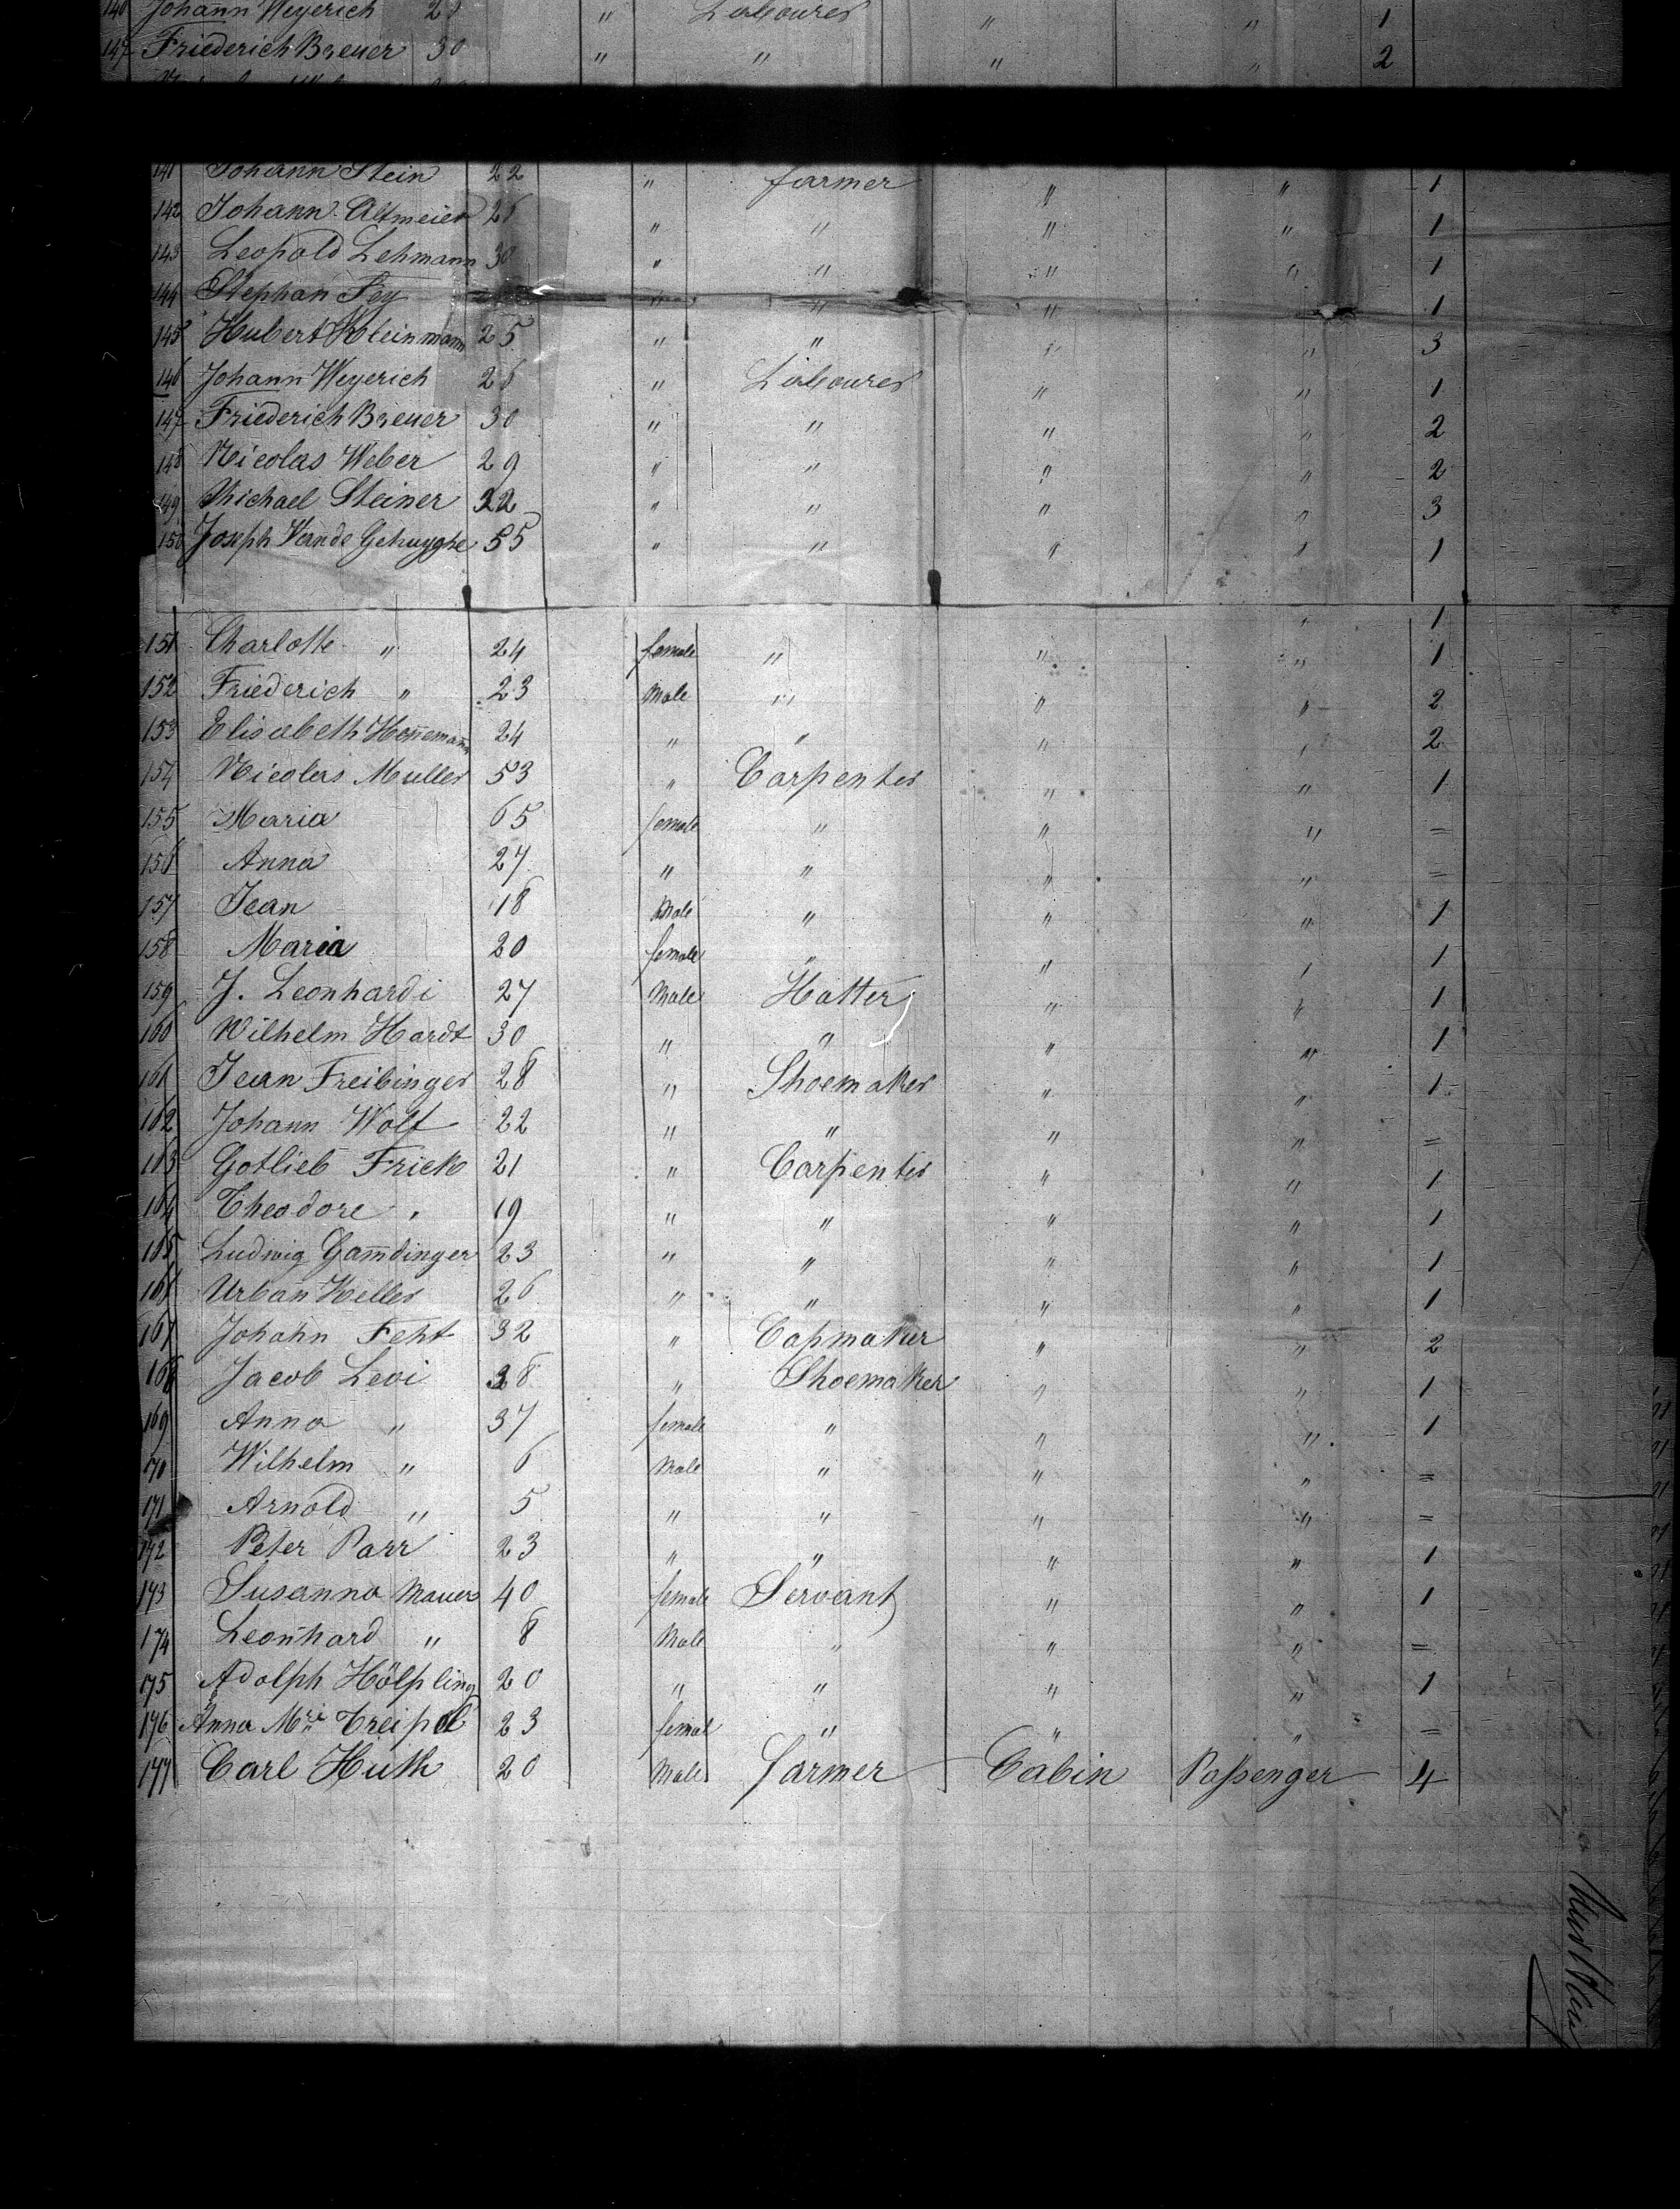 146 Johann Weyerich 26 " Labourer " " 1
147 Friederich Breuer 30 " " " " 2
141 Johann Stein 22 " farmer " " 1
142 Johann Altmeier 26 " " " " 1
143 Leopold Lehmann 30 " " " " 1
144 Stephan Fey " " " " 1
145 Hubert Kleinmann 25 " " " " 3
146 Johann Weyerich 26 " Labourer " " 1
147 Friederich Breuer 30 " " " " 2
148 Nicolas Weber 29 " " " " 2
149 Michael Steiner 32 " " " " 3
150 Joseph Vande Gehuyghe 55 " " " " 1
" 1
151 Charlotte " 24 female " " " 1
152 Friederich " 23 Male " " " 2
153 Elisabeth Honnemann 24 " " " " 2
154 Nicolas Muller 53 " Carpenter " " 1
155 Maria 65 female " " " =
156 Anna 27 " " " " =
157 Jean 18 Male " " " 1
158 Maria 20 female " " " 1
159 J. Leonhardi 27 Male Hatter " " 1
160 Wilhelm Hardt 30 " " " " 1
161 Jean Freibinger 28 " Shoemaker " " 1
162 Johann Wolf 22 " " " " =
163 Gotlieb Frick 21 " Carpenter " " 1
164 Theodore " 19 " " " " 1
165 Ludwig Gam̅dinger 23 " " " " 1
166 Urban Keller 26 " " " " 1
167 Johahn Feht 32 " Capmaker " " 2
168 Jacob Levi 38 " Shoemaker " " 1
169 Anna " 37 female " " " 1
170 Wilhelm " 6 Male " " " =
171 Arnold " 5 " " " " =
172 Peter Parr 23 " " " " 1
173 Susanna Mauer 40 female Servant " " 1
174 Leonhard " 8 Male " " " =
175 Adolph Hölpling 20 " " " " 1
176 Anna Mri Treipel 23 femal " " " =
177 Carl Huth 20 Male farmer Cabin Paſsenger 4